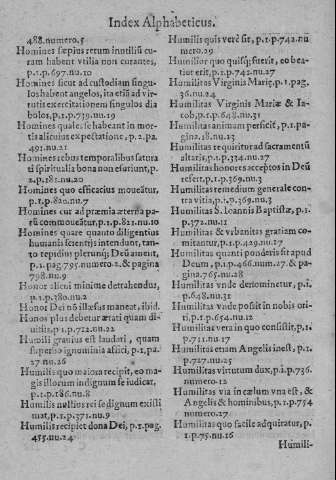 Index Alphabeticus.
488.numero.5
Homines sæpius rerum inutiliũ cu-
ram habent vtilia non curantes,
p.1.p.697.nu.10
Homines sicut ad custodiam singu-
los habent angelos, ita etiã ad vir-
tutis exercitationem singulos dia
bolos, p.1.p.719.nu.19
Homines quale. se habeant in mor-
tis alicuius expectatione, p.2.pa.
491.nu.21
Homines rebus temporalibus satura
ti spiritualia bona non esuriunt, p.
2.p.281.nu.20
Homines quo efficacius moueãtur,
p.1.p.820.nu.7
Homines cur ad præmia æterna pa-
rũ commoueãtur, p.1.p.821.nu.10
Homines quare quanto diligentius
humanis scientijs intendunt, tan-
to tepidius plerunq; Deũ ament,
p.1.pag.795.numero.2.& pagina
798.nu.9
Honor alicui minime detrahendus,
p.1.p.180.nu.2
Honor Dei nõ illæsus maneat, ibid.
Honor plus debetur ætati quam di-
uitijs, p.1.p.722.nu.22
Humili grauius est laudari, quam
superbo ignominia affici, p.1.pa.
27.nu.26
Humilis quo maiora recipit, eo ma-
gis illorum indignum se iudicat,
p.1.p.186.nu.8
Humilis nullius rei se dignum existi
mat, p.1.p.371.nu.9
Humilis recipiet dona Dei, p.1.pag.
455.nu.24
Humilis quis verè sit, p.1.p.742.nu
mero.29
Humilior quo quisq; fuerit, eo bea-
tior erit, p.1.p.742.nu.27
Humilitas Virginis Mariæ, p.1.pag.
36.nu.24
Humilitas Virginis Mariæ & Ia-
cob, p.1.p.648.nu.31
Humilitas animam perficit, p.1.pa-
gina.18.nu.13
Humilitas requiritur ad sacramentũ
altaris, p.1.p.334.nu.27
Humilitas honores acceptos in Deũ
refert, p.1.p.369.nu.3
Humilitas remedium generale con-
tra vitia, p.1.p.369.nu.3
Humilitas S. Ioannis Baptistæ, p.1.
p.372.nu.11
Humilitas & vrbanitas gratiam co-
mitantur, p.1.p.429.nu.17
Humilitas quanti ponderis sit apud
Deum, p.1.p.466.num.27.& pa-
gina.765.nu.28
Humilitas vnde denominetur, p.1.
p.648.nu.31
Humilitas vnde possit in nobis ori-
ri, p.1.p.654.nu.12
Humilitas vera in quo consistit, p.1.
p.711.nu.17
Humilitas etiam Angelis inest, p.1.
p.727.nu.25
Humilitas virtutum dux, p.1.p.736.
numero.12
Humilitas via in cælum vna est, &
Angelis & hominibus, p.1.p.754
numero.27
Humilitas quo facile adquiratur, p.
1.p.75.nu.16
Humili-